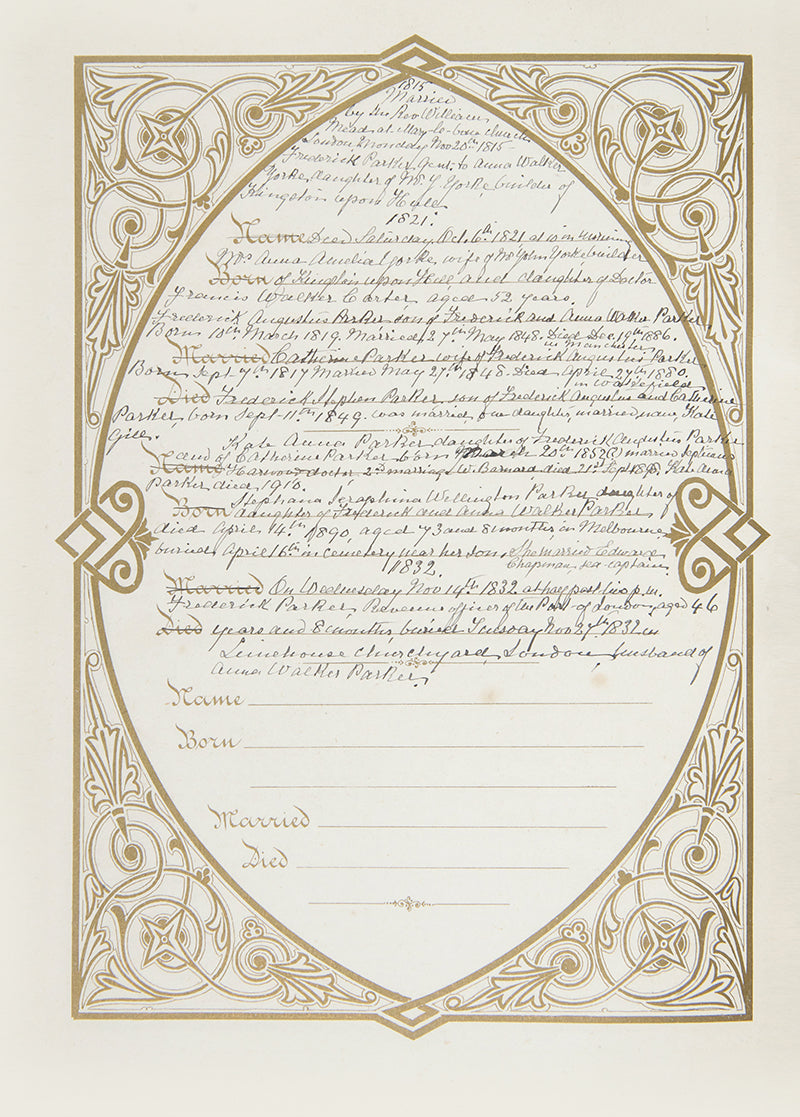 1815
Married
by the Rev William
Mead at Mary-le-bone church
London Monday Nov 20th 1815
Frederick Parker, Gent. to Anna Walker
Yorke, daughter of Mr Y Yorke, builder of
Kingston upon Hull
1821.
Name Died Saturday, Oct. 6th 1821 at 10 in morning
Mrs Anna Amelia Yorke, wife of Mr John Yorke builder
Born of Kingston upon Hull and daughter of Doctor
Francis Walker Carter aged 52 years.
Frederick Augustus Parker son of Frederick and Anna Walker Parker.
Born 10th March 1819. Married, 27th May 1848. Died Dec. 19th 1886.
in Manchester
Married Catherine Parker wife of Frederick Augustus Parker
Born Sept 7th 1817 Married May 27th 1848. Died April 27th 1880.
in Wakefield
Died Frederick Stephen Parker son of Frederick Augustus and Catherine
Parker, born Sept 11th 1849. was married, one daughter, married name, Kate
Gill.
Kate Anna Parker daughter of Frederick Augustus Parker
and of Catherine Parker born March 20th 1852 married
Name doctor 2nd marriage W. Barnard died 21st Sept Kate Anna
Parker died 1910.
Stephana Seraphina Wellington Parker daughter of
Born daughter of Frederick and Anna Walker Parker
died April 14th 1890, aged 73 and 8 months, in Melbourne
buried April 16th in cemetery near her son. She married Edward
Chapman, sea-captain.
1832.
Married On Wednesday Nov 14th 1832 at half past two p.m.
Frederick Parker, Revenue officer of the Port of London, aged 46
Died years and 8 months, buried Tuesday Nov 27th 1832 in
Limehouse churchyard, London, husband of
Anna Walker Parker.
Name
Born
Married
Died